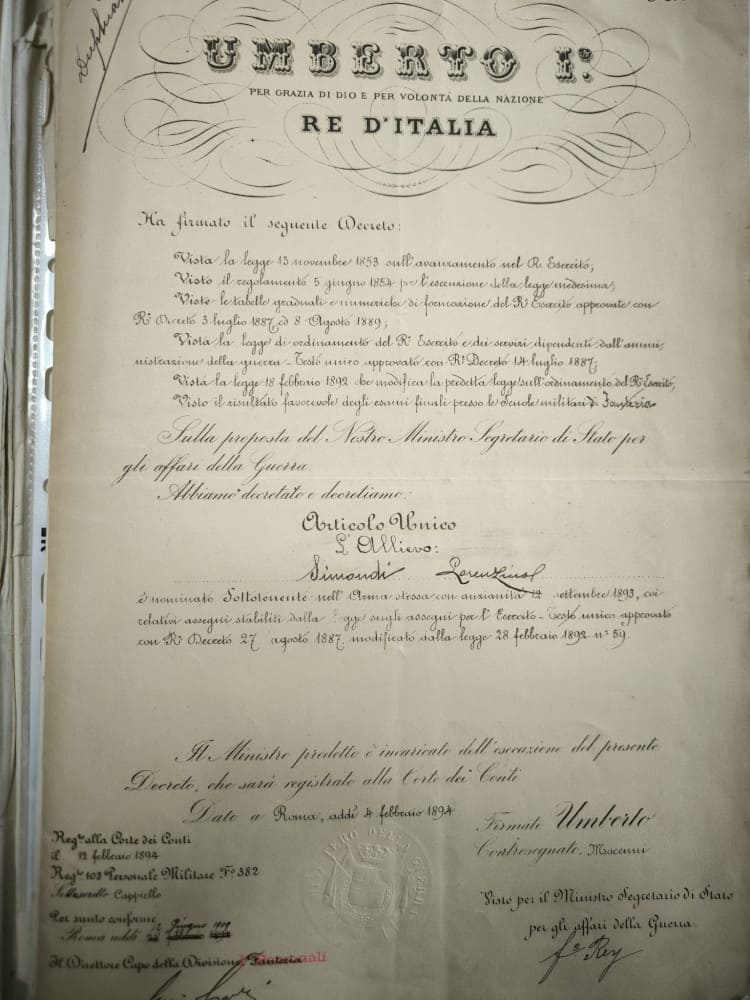 UMBERTO Iº.
PER GRAZIA DI DIO E PER VOLONTÀ DELLA NAZIONE
RE D'ITALIA
Ha firmato il seguente Decreto:
Vista la legge 13 novembre 1853 sull'avanzamento nel R. Esercito;
Visto il regolamento 5 giugno 1854 per l'esecuzione della legge medesima;
Viste le tabelle graduali e numeriche di formazione del R. Esercito approvate con
R. Decreto 3 luglio 1887, ed 8 Agosto 1889;
Vista la legge di ordinamento del R. Esercito e dei servizi dipendenti dall'ammi
nistrazione della guerra - Testo unico approvato con R. Decreto 14 luglio 1887;
Vista la legge 18 febbraio 1892 che modifica la predetta legge sull'ordinamento del R. Esercito;
Visto il risultato favorevole degli esami finali presso le Scuole militari di Fanteria
Sulla proposta del Nostro Ministro Segretario di Stato per
gli affari della Guerra.
Abbiamo decretato e decretiamo:
Articolo Unico
L'Allievo:
Simondi
è nominato Sottotenente nell'Arma stessa con anzianità 12 settembre 1893, coi
relativi assegni stabiliti dalla gge sugli assegni per l'Esercito - Testo unico approvato
con R. Decreto 27 agosto 1887, modificato dalla legge 28 febbraio 1892 n° 59.
Il Ministro predetto è incaricato dell'esecuzione del presente
Decreto, che sarà registrato alla Corte dei Conti
Dato a Roma, addì 4 febbraio 1894
Firmato Umberto
Controsegnato, Mocenni
Reg.to alla Corte dei Conti
il 12 febbraio 1894
Reg.to 103 Personale Militare F.° 382
Sottoscritto Cappiello
Visto per il Ministro Segretario di Stato
per gli affari della Guerra.
Per sunto conforme,
Roma addì
Il Direttore Capo della Divisione Fanteria